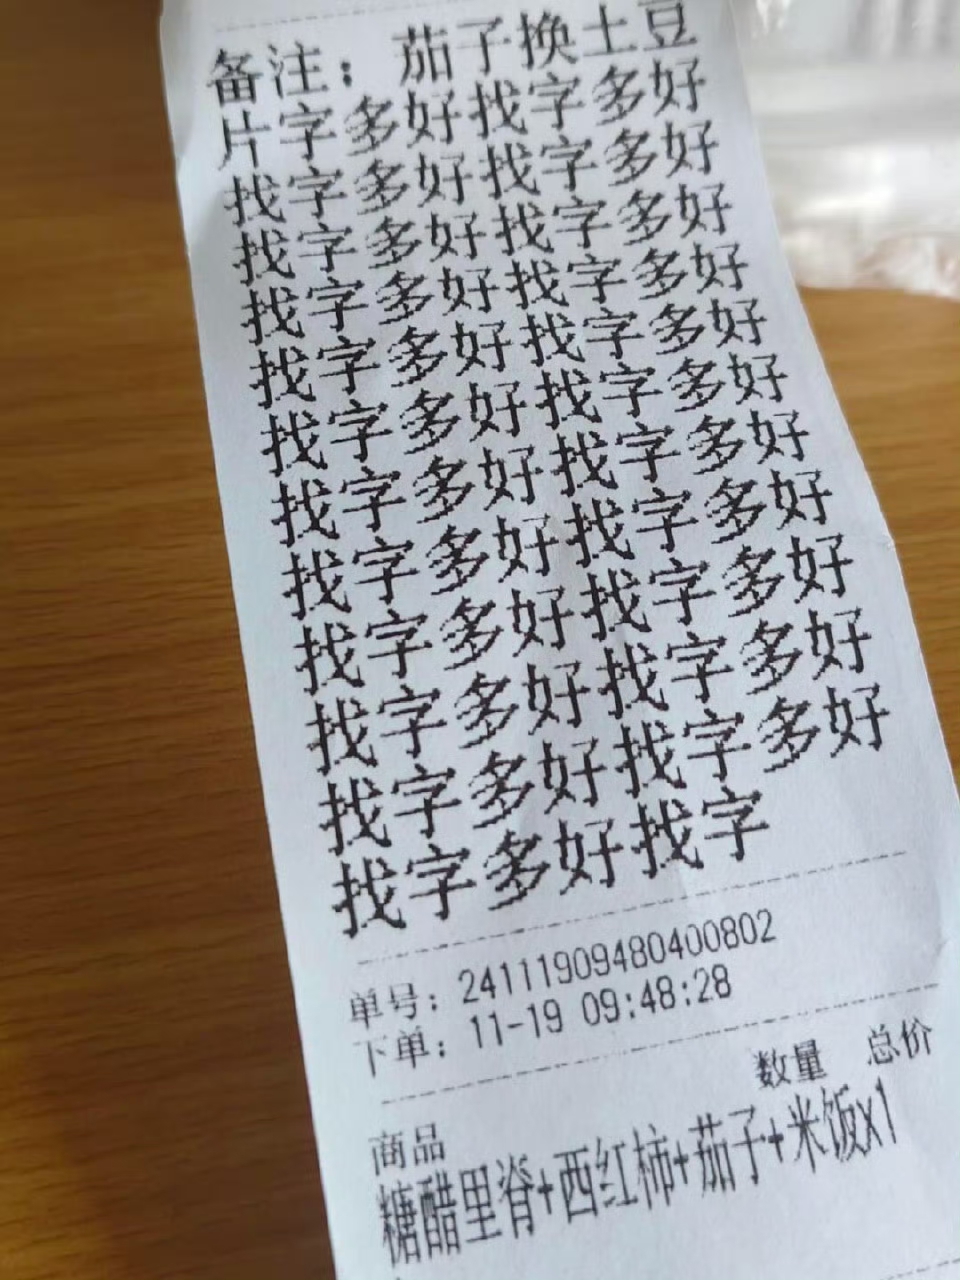 备注： 茄子换土豆
片字多好找字多好
找字多好找字多好
找字多好找字多好
找字多好找字多好
找字多好找字多好
找字多好找字多好
找字多好找字多好
找字多好找字多好
找字多好找字多好
找字多好找字多好
找字多好找字多好
找字多好找字
单号：241119094804008​02
下单：11-19 09:48:28
商品 数量 总价
糖醋里脊+西红柿+茄子+米饭x1